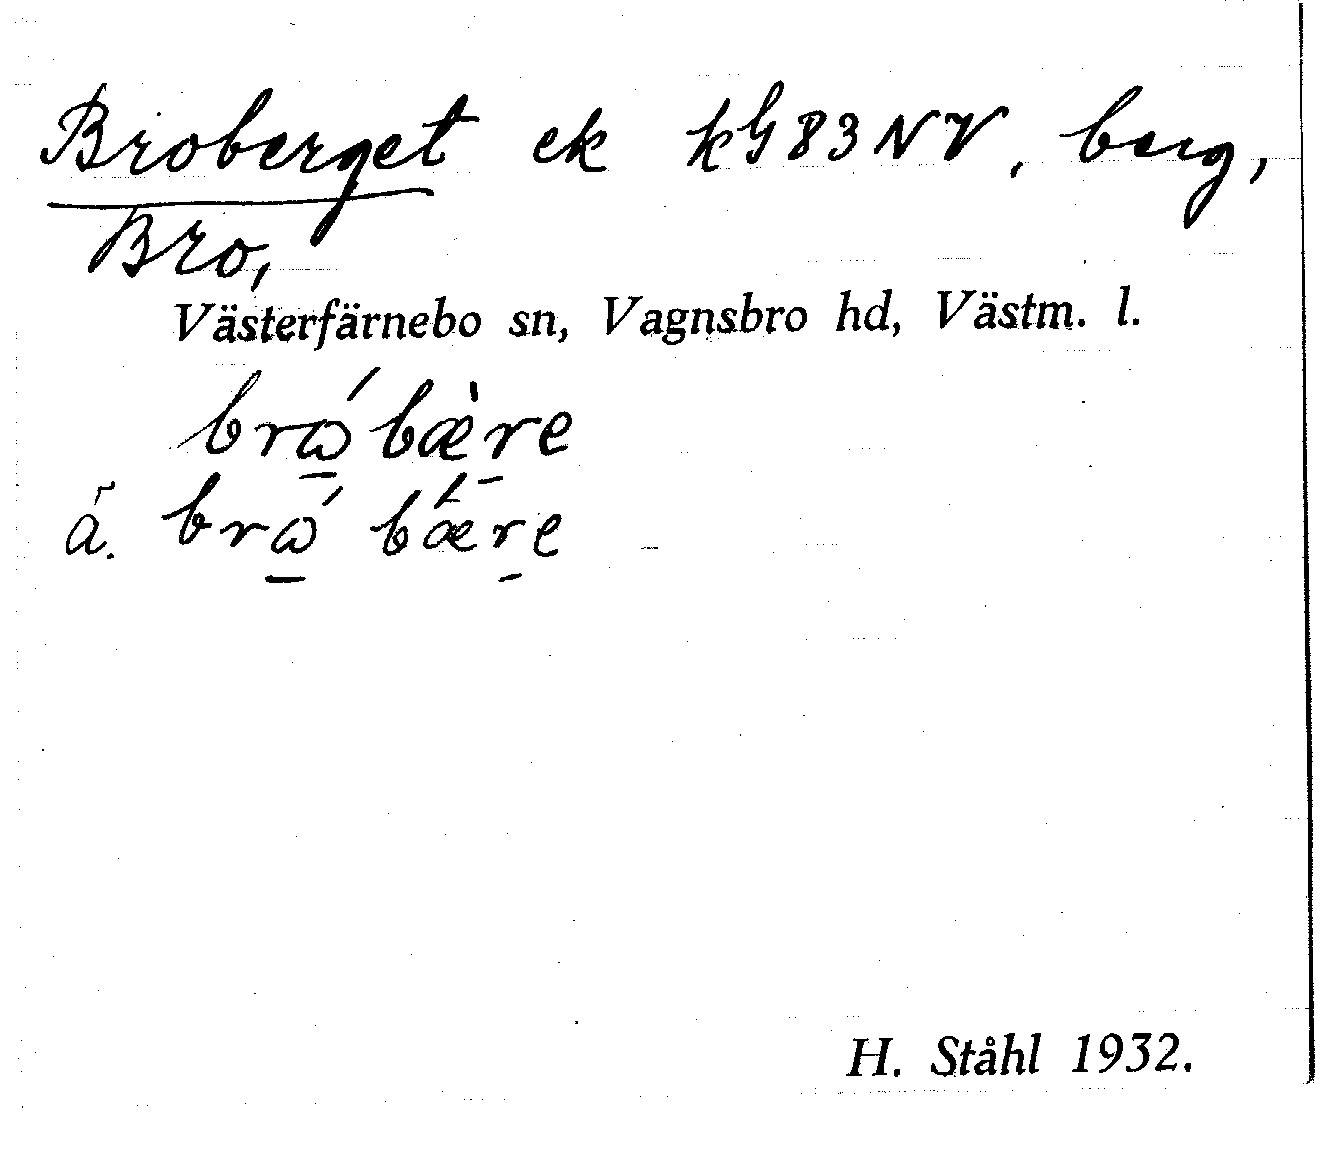 Broberget ek kG83NV. berg,
Bro,
Västerfärnebo sn, Vagnsbro hd, Västm. l.
brώ̲bæ̀r̲e
ä. brώ̲ bǽr̲e
H. Ståhl 1932.